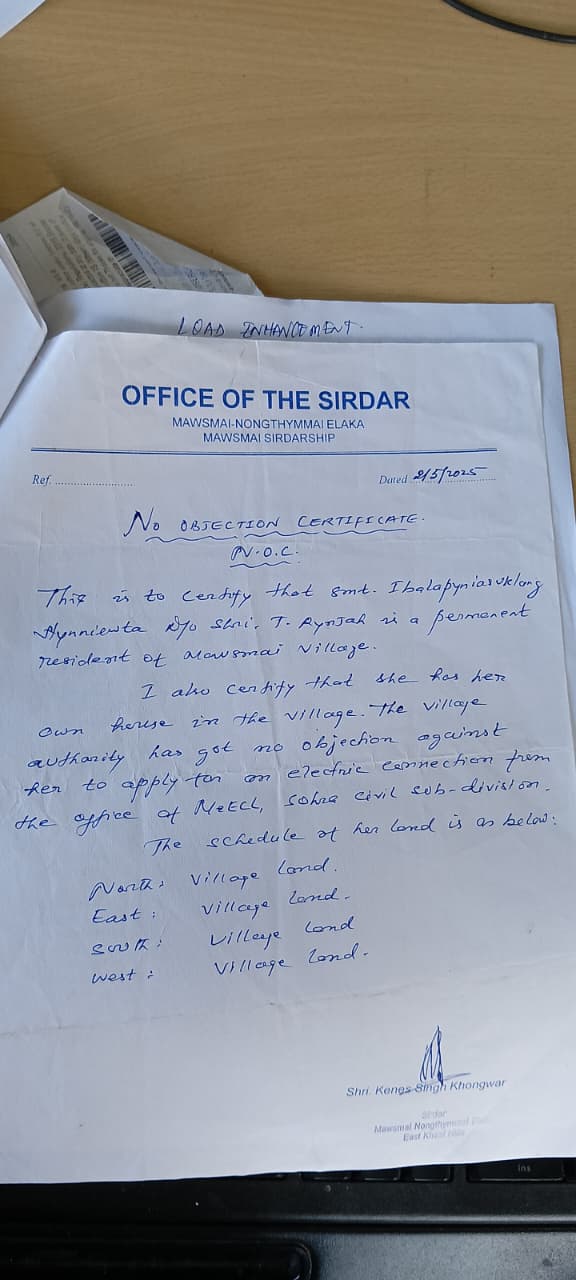 LOAD ENHANCEMENT.
OFFICE OF THE SIRDAR
MAWSMAI-NONGTHYMMAI ELAKA
MAWSMAI SIRDARSHIP
Ref. ........................
Dated 2/5/2025
NO OBJECTION CERTIFICATE.
N.O.C.
This is to certify that Smt. Ibalapyniasuklang
Hynniewta D/o Shri. T. Rynjah is a permanent
resident of Mawsmai Village.
I also certify that she has her
own house in the village. The village
authority has got no objection against
her to apply for an electric connection from
the office of MeECL, Sohra civil sub-division.
The schedule of her land is as below:
North: Village Land.
East : Village Land.
South : Village Land
West : Village Land.
Shri. Kenes Singh Khongwar
Sirdar
Mawsmai Nongthymmai
East Khasi Hills
Ins